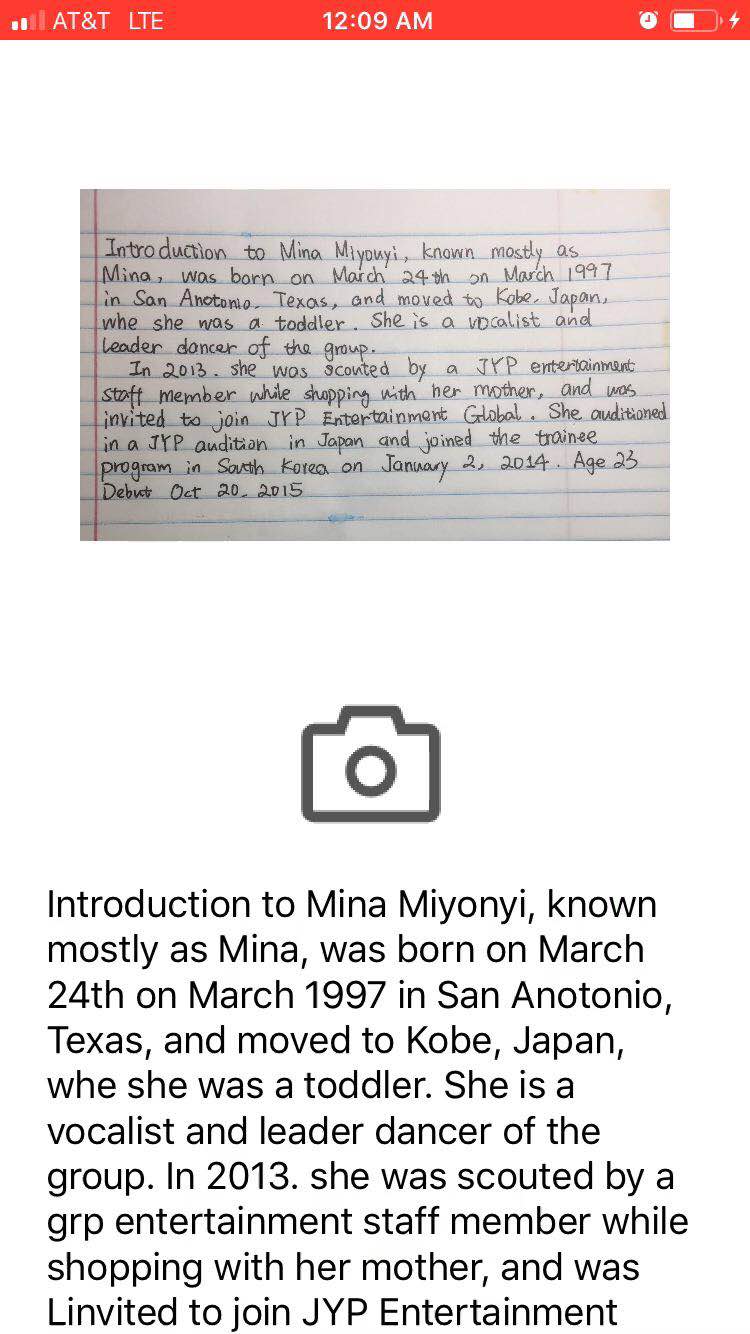 AT&T LTE 12:09 AM
Introduction to Mina Miyouyi, known mostly as
Mina, was born on March 24th on March 1997
in San Anotonio, Texas, and moved to Kobe, Japan,
whe she was a toddler. She is a vocalist and
leader dancer of the group.
In 2013. she was scouted by a JYP entertainment
staff member while shopping with her mother, and was
invited to join JYP Entertainment Global. She auditioned
in a JYP audition in Japan and joined the trainee
program in South Korea on January 2, 2014. Age 23
Debut Oct 20, 2015
Introduction to Mina Miyonyi, known
mostly as Mina, was born on March
24th on March 1997 in San Anotonio,
Texas, and moved to Kobe, Japan,
whe she was a toddler. She is a
vocalist and leader dancer of the
group. In 2013. she was scouted by a
grp entertainment staff member while
shopping with her mother, and was
Linvited to join JYP Entertainment